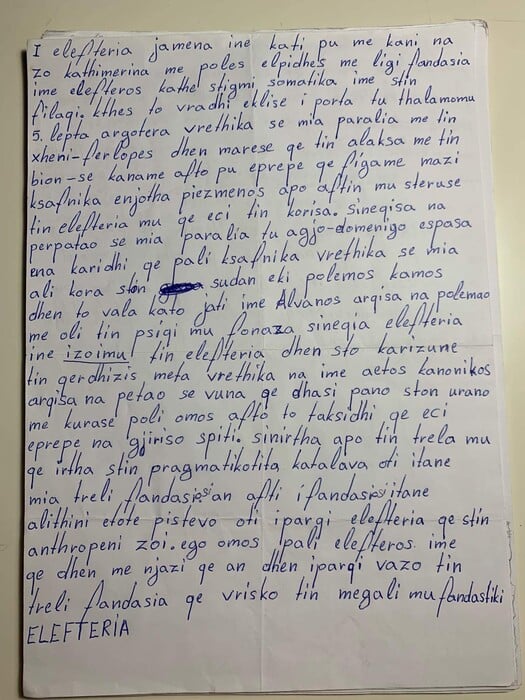 I elefteria jamena ine kati pu me kani na
zo kathimerina me poles elpidhes me ligi fandasia
ime elefteros kathe stigmi somatika ime stin
filagi. kthes to vradhi eklise i porta tu thalamomu
5. lepta argotera vrethika se mia paralia me tin
xheni-ferlopes dhen marese qe tin alaksa me tin
bion-se kaname afto pu eprepe qe figame mazi
ksafnika enjotha piezmenos apo aftin mu steruse
tin elefteria mu qe eci tin korisa. sineqisa na
perpatao se mia paralia tu agjo-domenigo espasa
ena karidhi qe pali ksafnika vrethika se mia
ali kora stin sudan eki polemos kamos
dhen to vala kato jati ime Alvanos arqisa na polemao
me oli tin psiqi mu fonaza sineqia elefteria
ine izoimu tin elefteria dhen sto karizune
tin qerdhizis meta vrethika na ime aetos kanonikos
arqisa na petao se vuna qe dhasi pano ston urano
me kurase poli omos afto to taksidhi qe eci
eprepe na gjiriso spiti. sinirtha apo tin trela mu
qe irtha stin pragmatikotita katalava oti itane
mia treli fandasisi an afti i fandasisi itane
alithini etote pistevo oti iparqi elefteria qe stin
anthropeni zoi. ego omos pali elefteros ime
qe dhen me njazi qe an dhen iparqi vazo tin
treli fandasia qe vrisko tin megali mu fandastiki
ELEFTERIA